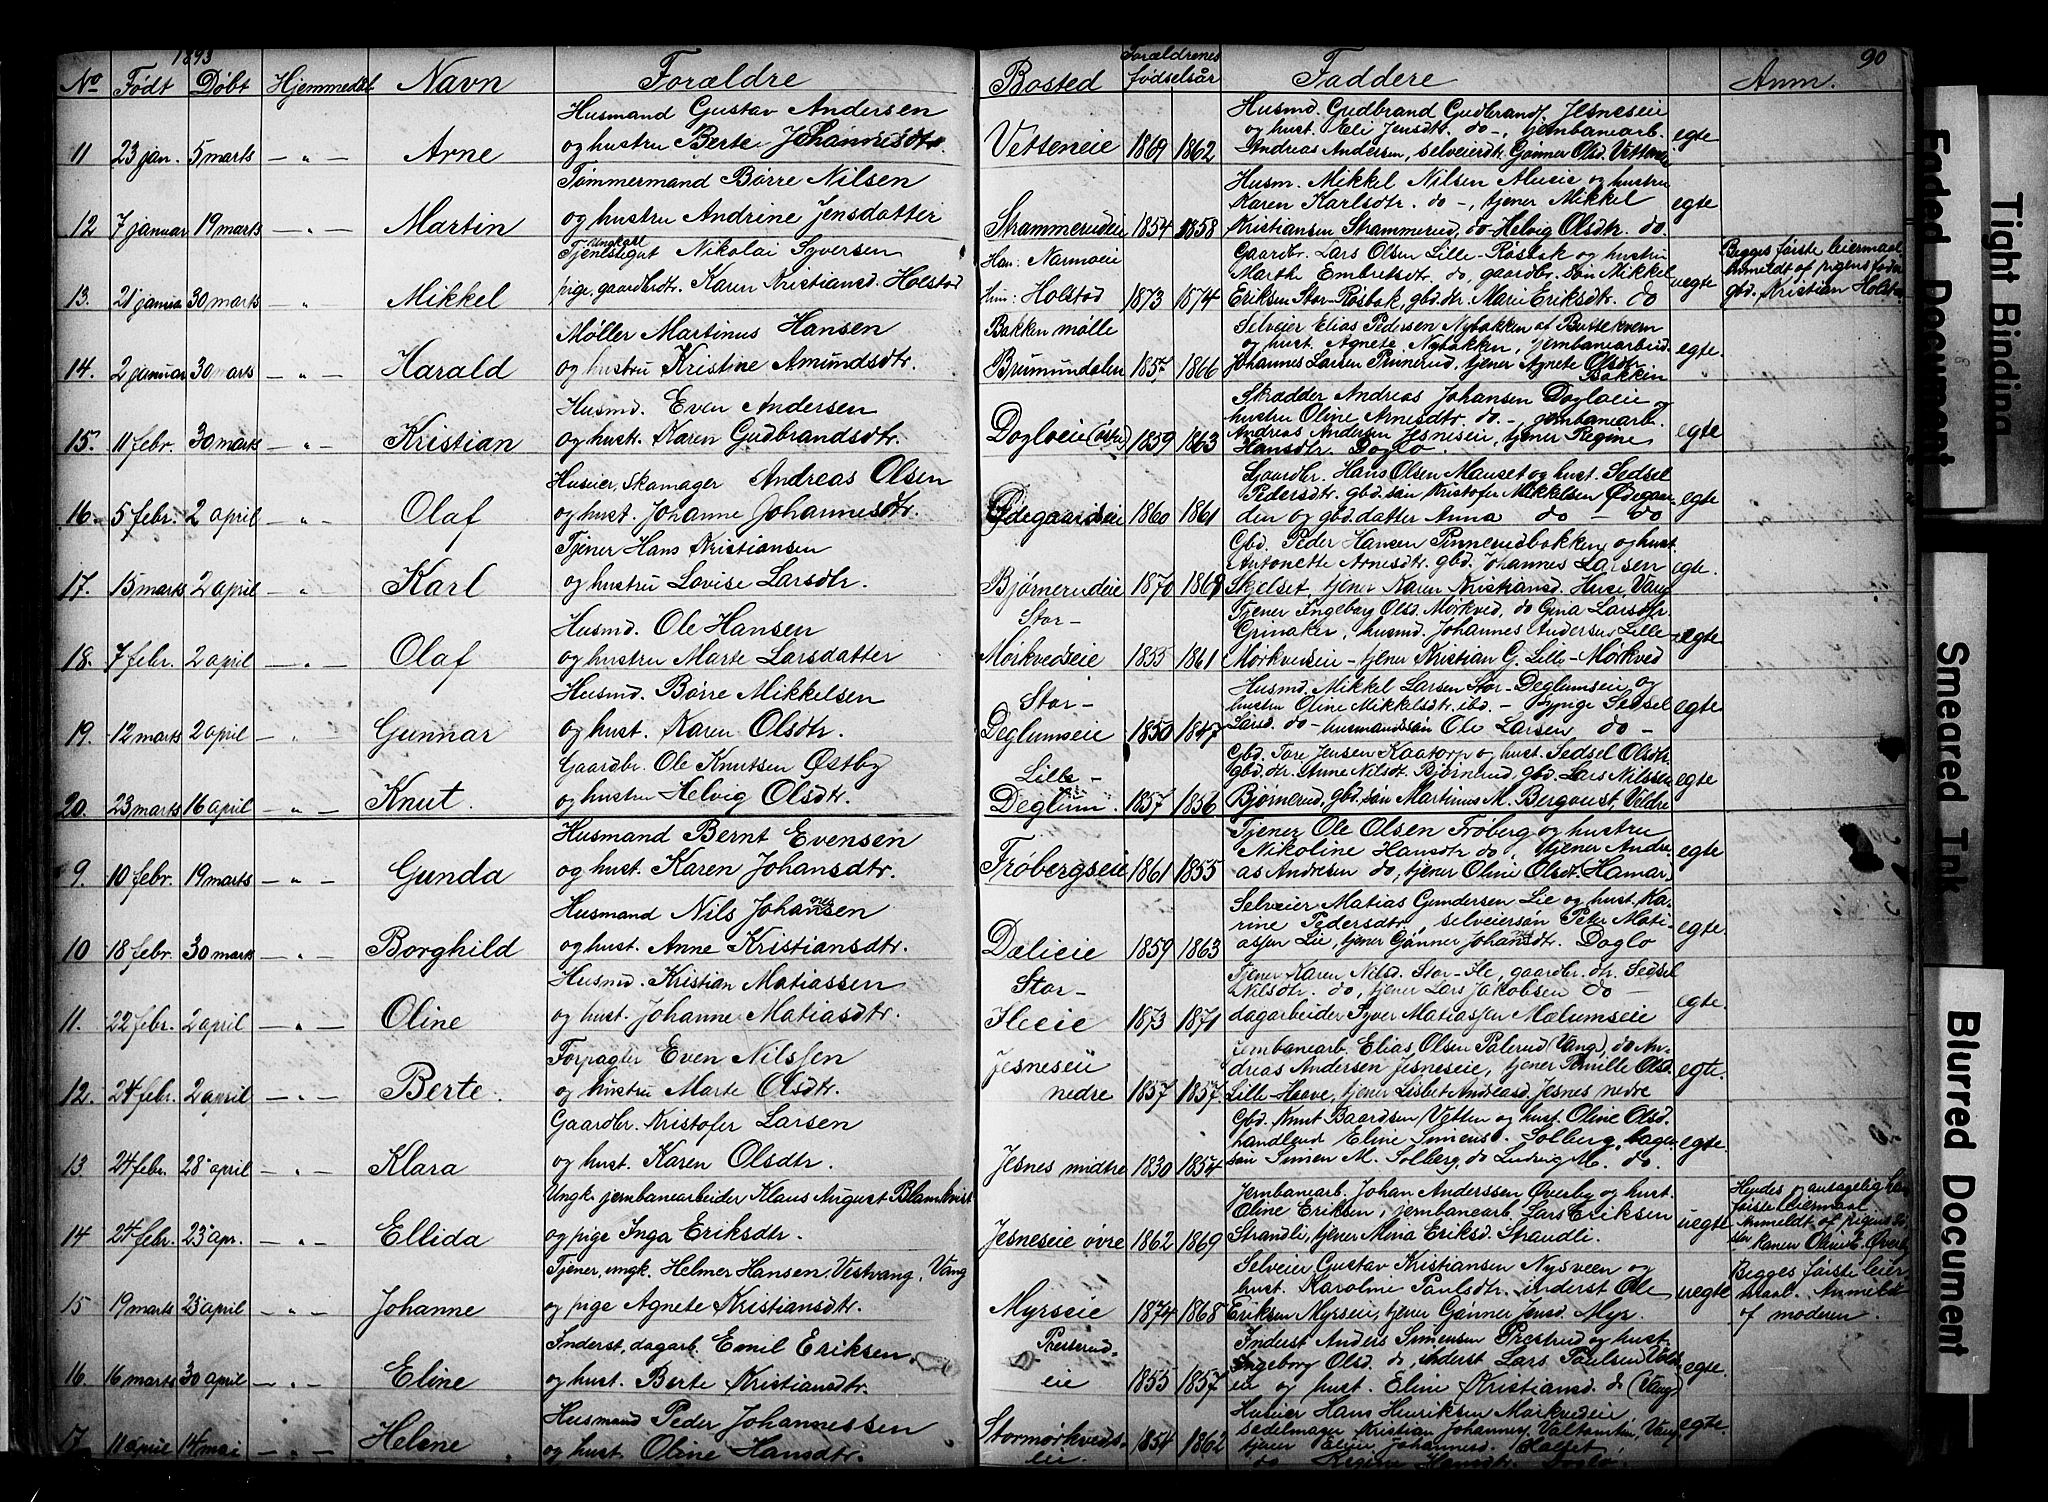 1893
90
No Født Døbt Hjemmedøbt Navn Forældre Bosted Forældrenes fødselsår Faddere Anm.
11 23 jan. 5 marts — „ — Arne
Husmand Gustav Andersen
og hustru Berte Johannesdtr.
Vetteneie 1869 1862
Husmd. Gudbrand Gudbrands. Jesneseie
og hust. Eli Jensdtr. do -, jernbanearb.
Andreas Andersen, selveierdtr. Gønner Olsd. Vetteneie
egte
12 7 januar 19 marts — „ — Martin
Tømmermand Børre Nilsen
og hustru Andrine Jensdatter
Strammerudeie 1854 1858
Husm. Mikkel Nilsen Alueie og hustru
Karen Karlsdtr. do -, tjener Mikkel
Kristiansen Strammerud, do Helvig Olsdtr. do
egte
13. 21 januar 30 marts „ Mikkel
Ungkarl
Tjenestegut Nikolai Syversen
pige, gaardbrdtr. Karen Kristiansd. Holstad
Han: Narmoeie
Hun: Holstad 1873 1874
Gaardbr. Lars Olsen Lille-Røsbak og hustru
Marthe Embretsdtr. do, gaardbr. søn Mikkel
Eriksen Stor-Røsbak, gbd. dtr. Marie Eriksdtr. do
uegte
Begges første leiermaal
Anmeldt af pigens fader
gbd. Kristian Holstad
14. 2 januar 30 marts „ Harald
Møller Martinus Hansen
og hustru Kristine Amundsdtr.
Bakken mølle
Brumundalen 1857 1866
Selveier Elias Pedersen Nybakken af Buttekvern
og hust. Agnete Nybakken, jernbanearbeid.
Johannes Larsen Pinnerud, tjener Agnete Olsdtr.
Bakken
egte.
15. 11 febr. 30 marts „ Kristian
Husmd. Even Andersen
og hustr. Karen Gudbrandsdtr.
Dogloeie (øvre) 1859 1863
Skrædder Andreas Johansen Dogloeie
hustru Oline Arnesdtr. do. - jernbanearb.
Andreas Andersen Jesneseie, tjener Regine
Hansdtr. Doglo.
egte
16. 5 febr. 2 april „ Olaf
Huseier, Skomager Andreas Olsen
og hust. Johanne Johannesdtr.
Ødegaardseie 1860 1861
Gaardbr. Hans Olsen Mauset og hust. Sedsel
Pedersdtr. gbd. søn Kristofer Mikkelsen Ødegaar-
den og gbd. datter Anna do — do
egte
17. 15 marts 2 april „ Karl
Tjener Hans Kristiansen
og hustru Lovise Larsdtr.
Bjørnerudeie 1870 1868
Gbd. Peder Hansen Pinnerudbakken og hust.
Antonette Arnesdtr. gbd. Johannes Larsen
Skjelset, tjener Karen Kristiansd. Huse, Vang
egte.
18. 7 febr. 2 april — „ — Olaf
Husmd. Ole Hansen
og hustru Marte Larsdatter
Stor-
Mørkvedseie 1855 1861
Tjener Ingeborg Olsd. Mørkved, do Gina Larsdtr
Grinaker, husmd. Johannes Andersen Lille-
Mørkvedseie - tjener Kristian G. Lille-Mørkved
egte
19. 12 marts 2 april „ Gunnar
Husmd. Børre Mikkelsen
og hust. Karen Olsdtr.
Stor-
Deglumseie 1850 1847
Husmd. Mikkel Larsen Stor-Deglumseie og
hustru Oline Mikkelsdtr. ibd. - Pige Sedsel
Larsd. do - husmandssøn Ole Larsen do -
egte
20. 23 marts 16 april „ — Knut.
Gaardbr. Ole Knutsen Østby
og hustru Helvig Olsdtr.
Lille-
Deglum. 1857 1856
Gbd. Tore Jensen Kaatorp og hust. Sedsel Olsdtr.
gbd. dtr. Anne Nilsdtr. Bjørnerud, gbd. Lars Nilssen
Bjørnerud, gbd. søn Martinus M. Bergvust, Veldre
egte
9. 10 febr. 19 marts — „ — Gunda
Husmand Bernt Evensen
og hust. Karen Johansdtr.
Frøbergseie 1861 1855
Tjener Ole Olsen Frøberg og hustru
Nikoline Hansdtr do, tjener Andre-
as Andresen do, tjener Oline Olsdt. Hamar,
egte
10 18 febr. 30 marts „ — Borghild
Husmand Nils Johannesen
og hust. Anne Kristiansdtr.
Dælieie 1859 1863
Selveier Matias Gundersen Lie og hust. Ka-
rine Pedersdtr, selveiersøn Peter Mati-
asjen Lie, tjener Gønner Johansdtr. Doglo
egte.
11. 22 febr. 2 april — „ — Oline
Husmd. Kristian Matiassen
og hust. Johanne Matiasdtr.
Stor-
Ileeie 1873 1871
Tjener Karen Nilsd. Stor-Ile, gaardbr. dtr. Sedsel
Nilsdtr. do, tjener Lars Jakobsen do —
dagarbeider Syver Matiassen Mælumseie
egte.
12. 24 febr. 2 april — „ — Berte.
Forpagter Even Nilssen
og hustru Marte Olsdtr.
Jesneseie
nedre 1857 1857
Jernbanearb. Elias Olsen Palerud (Vang), do An-
dreas Andersen Jesneseie, tjener Pernille Olsd.
Lille-Haave, tjener Lisbet Andreasd. Jesnes nedre
egte.
13 24 febr. 28 april — „ — Klara
Gaardbr. Kristofer Larsen
og hust. Karen Olsdtr.
Jesnes midtre 1830 1854
Gbd. Knut Baardsen Vetten og hust. Oline Olsd.
handlend Eline Simensd. Solberg, bager-
søn Simen M. Solberg, do Ludvig M. do.
egte
14 24 febr. 23 apr. „ — Ellida
Ungk. jernbanearbeider Klaus August Blamkvist
og pige Inga Eriksdtr.
Jesneseie øvre 1862 1869
Jernbanearb. Johan Anderssen Øverby og hust.
Oline Eriksen, jernbanearb. Lars Eriksen
Strandli, tjener Mina Eriksd. Strandli.
uegte
Hendes og antagelig hans
første leiermaal.
Anmeldt af pigens sø-
ster konen Oline E. Øverby
15 19 marts 23 april „ — Johanne
Tjener, ungk. Helmer Hansen, Vestvang, Vang
og pige Agnete Kristiansdtr.
Myrseie 1874 1868
Selveier Gustav Kristiansen Nysveen og
hust. Karoline Paulsdtr. inderst Ole
Eriksen Myrseie, tjener Gønner Jensd. Myr.
uegte
Begges første leier-
maal. Anmeldt
af moderen.
16 16 marts 30 april „ — Eline
Inderst, dagarb. Emil Eriksen.
og hust. Berte Kristiansdtr.
Presterud-
eie 1855 1857
Inderst Anders Simensen Prestrud og hust.
Ingeborg Olsd. do, inderst Lars Paulsen
eie og hust. Eline Kristiansd. do (Vang)
egte.
17 11 april 14 mai — „ — Helene
Husmand Peder Johannessen
og hust. Oline Hansdtr.
Stormørkveds-
eie. 1854 1862
Huseier Hans Henriksen Mørkvedeie
sedelmager Kristian Johannes. Valtomten, Vang
tjener Eline Johannesd.
do Regine Hansdtr. Doglo.
egte.
Faded Document
Tight Binding
Smeared Ink
Blurred Document